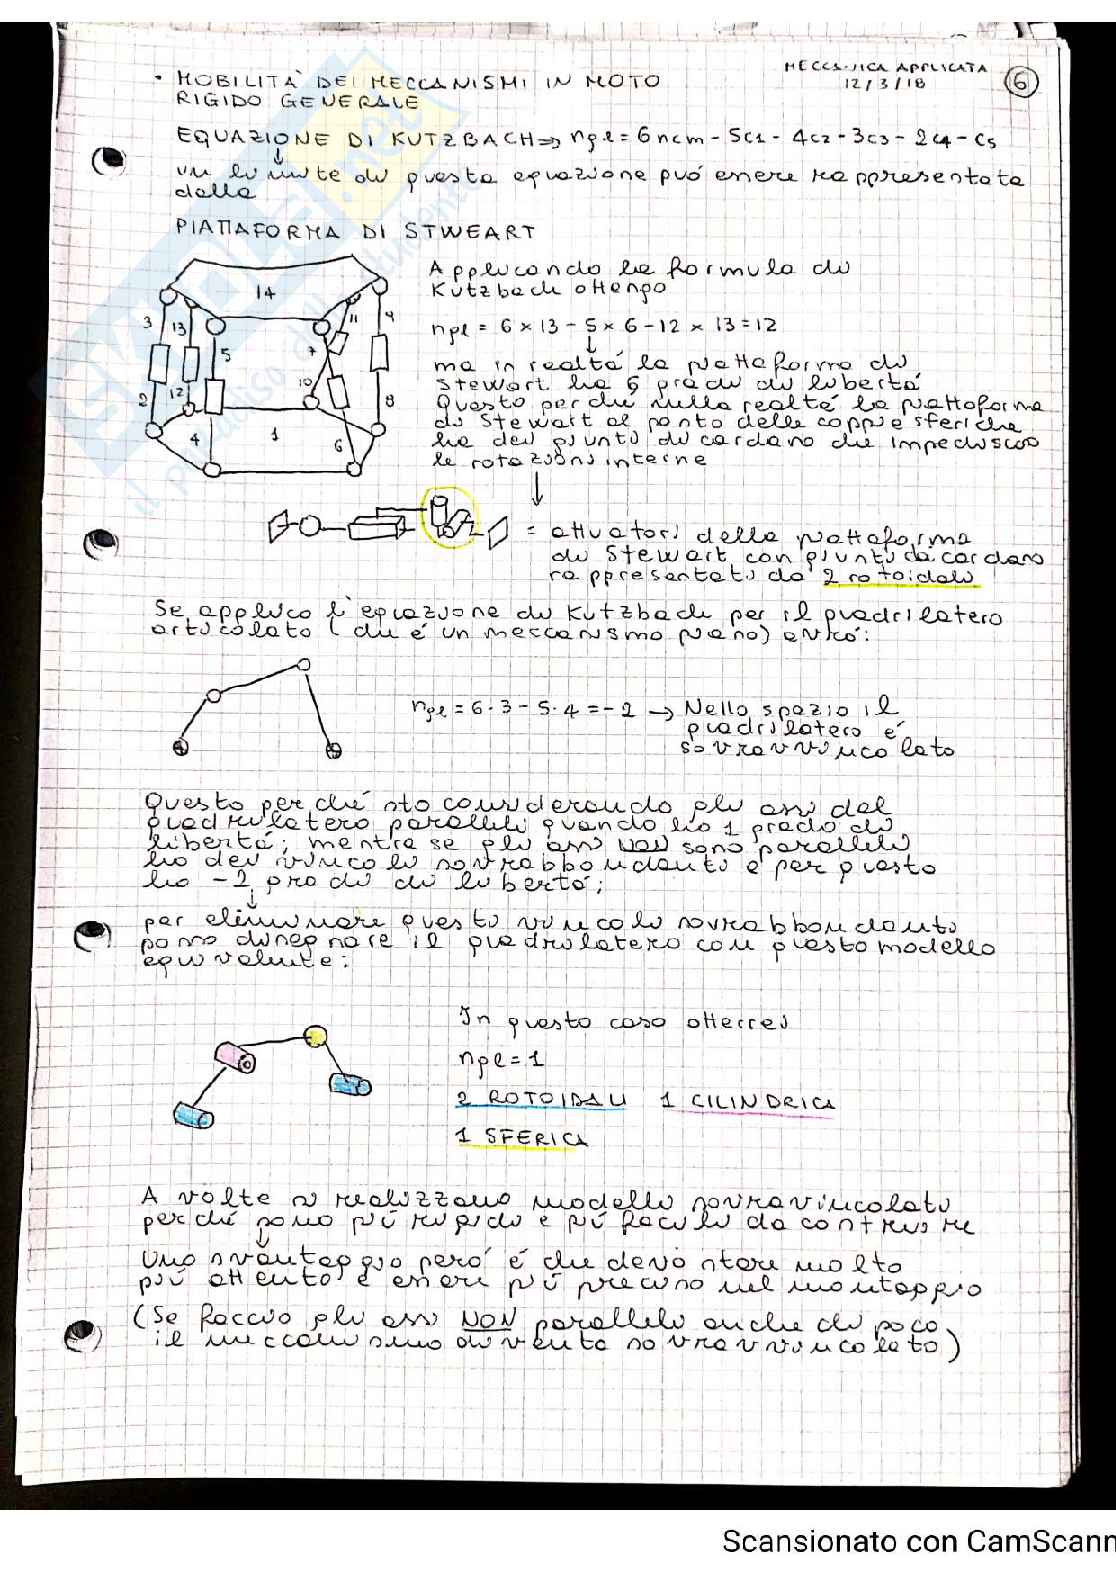 MECCANICA APPLICATA
12/3/18
6
• MOBILITÀ DEI MECCANISMI IN MOTO
RIGIDO GENERALE
EQUAZIONE DI KUTZBACH => ngl = 6ncm - 5c1 - 4c2 - 3c3 - 2c4 - c5
un limite di questa equazione può essere rappresentata
dalla
PIATTAFORMA DI STWEART
Applicando la formula di
Kutzbach ottengo
ngl = 6 x 13 - 5 x 6 - 12 x 13 = 12
ma in realtà la piattaforma di
Stewart ha 6 gradi di libertà
Questo perché nella realtà la piattaforma
di Stewart al posto delle coppie sferiche
ha dei giunti di cardano che impediscono
le rotazioni interne
14
3
13
5
11
4
7
2
12
10
8
4
1
6
= attuatori della piattaforma
di Stewart con giunti di cardano
rappresentati da 2 rotoidali
Se applico l'equazione di Kutzbach per il quadrilatero
articolato (che è un meccanismo piano) avrò:
ngl = 6·3 - 5·4 = -2 → Nello spazio il
quadrilatero è
sovravvincolato
Questo perché sto considerando gli assi del
quadrilatero paralleli quando ho 1 grado di
libertà; mentre se gli assi NON sono paralleli
ho dei vincoli sovrabbondanti e per questo
ho -2 gradi di libertà;
per eliminare questi vincoli sovrabbondanti
posso disegnare il quadrilatero con questo modello
equivalente:
In questo caso otterrei
ngl = 1
2 ROTOIDALI 1 CILINDRICA
1 SFERICA
A volte si realizzano modelli sovravincolati
perché sono più rigidi e più facili da costruire
Uno svantaggio però è che devo stare molto
più attento e essere più preciso nel montaggio
(Se faccio gli assi NON paralleli anche di poco
il meccanismo diventa sovravvincolato)
Scansionato con CamScann